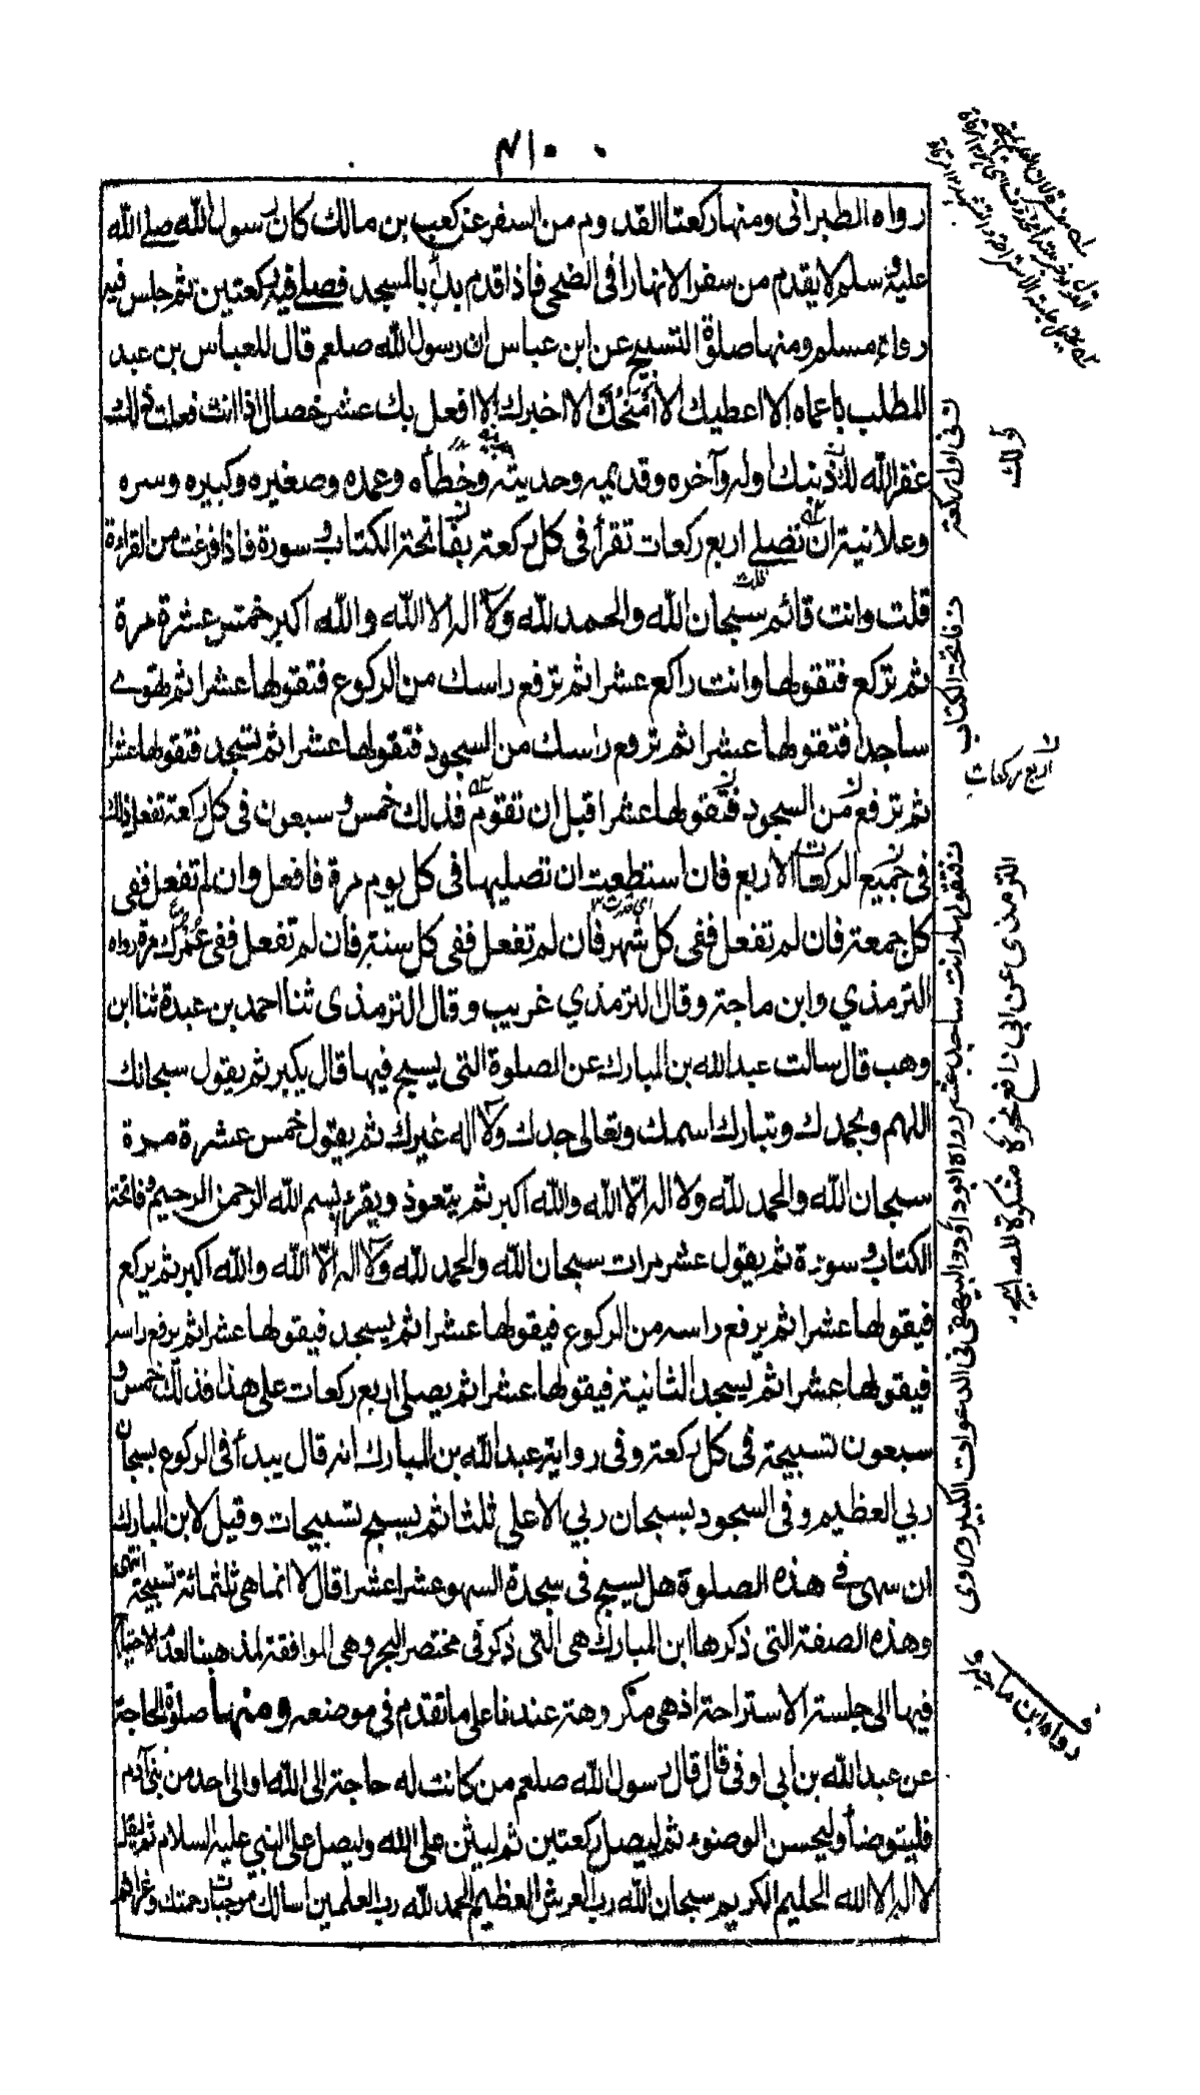 ٤١٠
رواه الطبرانى ومنها ركعتا القدوم من السفر عن كعب بن مالك كان رسول الله صلى الله
عليه وسلم لا يقدم من سفر الا نهارا فى الضحى فاذا قدم بدأ بالمسجد فصلى فيه ركعتين ثم جلس فيه
رواه مسلم ومنها صلوة التسبيح عن ابن عباس ان رسول الله صلعم قال للعباس بن عبد
المطلب يا عماه الا اعطيك الا امنحك الا اخبرك الا افعل بك عشر خصال اذا انت فعلت ذلك
غفر الله لك ذنبك اوله وآخره وقديمه وحديثه وخطأه وعمده وصغيره وكبيره وسره
وعلانيته ان تصلى اربع ركعات تقرأ فى كل ركعة بفاتحة الكتاب وسورة فاذا فرغت من القراءة
قلت وانت قائم سبحان الله والحمد لله ولا اله الا الله والله اكبر خمس عشرة مرة
ثم تركع فتقولها وانت راكع عشرا ثم ترفع راسك من الركوع فتقولها عشرا ثم تهوى
ساجدا فتقولها عشرا ثم ترفع راسك من السجود فتقولها عشرا ثم تسجد فتقولها عشرا
ثم ترفع من السجود فتقولها عشرا قبل ان تقوم فذلك خمس وسبعون فى كل ركعة تفعل ذلك
فى جميع الركعات الاربع فان استطعت ان تصليها فى كل يوم مرة فافعل وان لم تفعل ففى
كل جمعة فان لم تفعل ففى كل شهر فان لم تفعل ففى كل سنة فان لم تفعل ففى عمرك مرة رواه
الترمذي وابن ماجة وقال الترمذي غريب وقال الترمذى ثنا احمد بن عبدة ثنا ابن
وهب قال سالت عبد الله بن المبارك عن الصلوة التى يسبح فيها قال يكبر ثم يقول سبحانك
اللهم وبحمدك وتبارك اسمك وتعالى جدك ولا اله غيرك ثم يقول خمس عشرة مرة
سبحان الله والحمد لله ولا اله الا الله والله اكبر ثم يتعوذ ويقرء بسم الله الرحمن الرحيم وفاتحة
الكتاب وسورة ثم يقول عشر مرات سبحان الله والحمد لله ولا اله الا الله والله اكبر ثم يركع
فيقولها عشرا ثم يرفع راسه من الركوع فيقولها عشرا ثم يسجد فيقولها عشرا ثم يرفع راسه
فيقولها عشرا ثم يسجد الثانية فيقولها عشرا ثم يصلى اربع ركعات على هذا فذلك خمس و
سبعون تسبيحة فى كل ركعة وفى رواية عبد الله بن المبارك انه قال يبدأ فى الركوع بسبحان
ربي العظيم وفى السجود بسبحان ربي الاعلى ثلثا ثم يسبح تسبيحات وقيل لابن المبارك
ان سهى فى هذه الصلوة هل يسبح فى سجدة السهو عشرا عشرا قال لا انما هى ثلثمائة تسبيحة انتهى
وهذه الصفة التى ذكرها ابن المبارك هى التى ذكر فى مختصر البحر وهى الموافقة لمذهبنا لعدم الاحتياج
فيها الى جلسة الاستراحة اذ هى مكروهة عندنا على ما تقدم فى موضعه ومنها صلوة الحاجة
عن عبد الله بن ابى اوفى قال قال رسول الله صلعم من كانت له حاجة الى الله او الى احد من بنى آدم
فليتوضأ وليحسن الوضوء ثم ليصل ركعتين ثم ليثن على الله وليصل على النبي عليه السلام ثم ليقل
لا اله الا الله الحليم الكريم سبحان الله رب العرش العظيم الحمد لله رب العلمين اسالك موجبات رحمتك وعزائم
ن فى اول ركعة
ن فاتحة الكتاب
ن اربع ركعات
ن فتقولها وانت ساجد عشر رواه ابوداؤد والبيهقى فى الدعوات الكبير وروى
الترمذى عن ابى رافع نحوه مشكوة المصابيح
رواه ابن ماجة